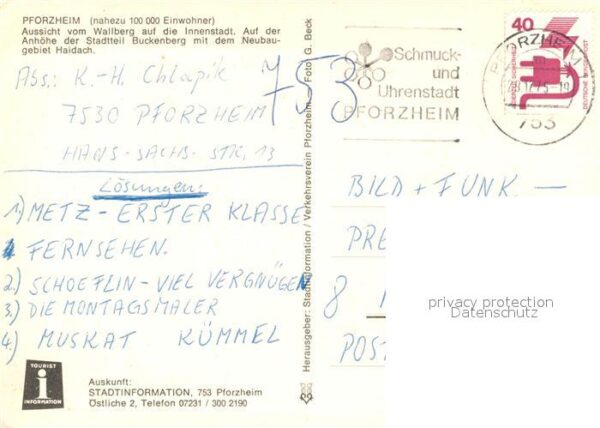 PFORZHEIM (nahezu 100 000 Einwohner)
Aussicht vom Wallberg auf die Innenstadt. Auf der
Anhöhe der Stadtteil Buckenberg mit dem Neubau-
gebiet Haidach.
Abs: K.-H. Chlapik
7530 PFORZHEIM
HANS-SACHS-STR. 13
Lösungen:
1) METZ - ERSTER KLASSE
FERNSEHEN.
2.) SCHOEFLIN - VIEL VERGNÜGEN
3.) DIE MONTAGSMALER
4.) MUSKAT KÜMMEL
TOURIST
i
INFORMATION
Auskunft:
STADTINFORMATION, 753 Pforzheim
Östliche 2, Telefon 07231 / 300 2190
Herausgeber: Stadtinformation / Verkehrsverein Pforzheim Foto: G. Beck
753
Schmuck-
und
Uhrenstadt
PFORZHEIM
40
DEUTSCHE BUNDESPOST
PFORZHEIM
753
BILD + FUNK —
PRE
8
POST
privacy protection
Datenschutz